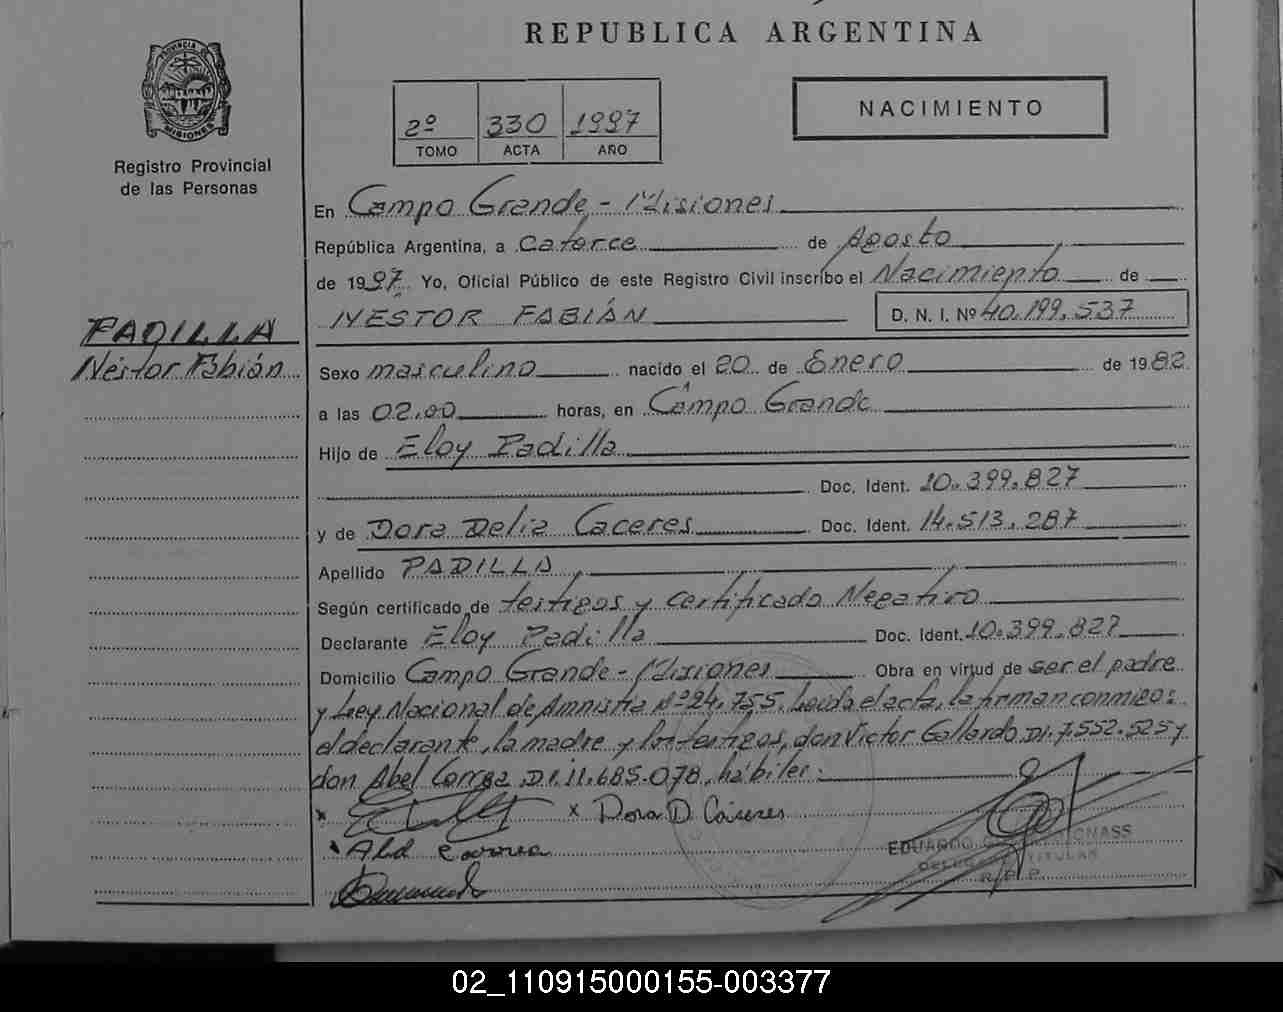 REPUBLICA ARGENTINA
PROVINCIA DE
MISIONES
Registro Provincial
de las Personas
2º 330 1997
TOMO ACTA AÑO
NACIMIENTO
En Campo Grande - Misiones
República Argentina, a catorce de Agosto
de 1997. Yo, Oficial Público de este Registro Civil inscribo el Nacimiento de
NESTOR FABIÁN D. N. I. Nº 40.199.537
PADILLA
Néstor Fabián
Sexo masculino nacido el 20 de Enero de 1982
a las 02,00 horas, en Campo Grande
Hijo de Eloy Padilla
Doc. Ident. 10.399.827
y de Dora Delia Caceres Doc. Ident. 14.513.287
Apellido PADILLA
Según certificado de testigos y certificado Negativo
Declarante Eloy Padilla Doc. Ident. 10.399.827
Domicilio Campo Grande - Misiones Obra en virtud de ser el padre
y Ley Nacional de Amnistia Nº 24.755. Leida el acta, la firman conmigo:
el declarante, la madre y los testigos, don Victor Gallardo D.I. 7.552.525 y
don Abel Correa D.I. 11.685.078, hábiles:
x x Dora D Cáceres
Abel Correa
EDUARDO
DELEGADO TITULAR
R. P. P.
02_110915000155-003377